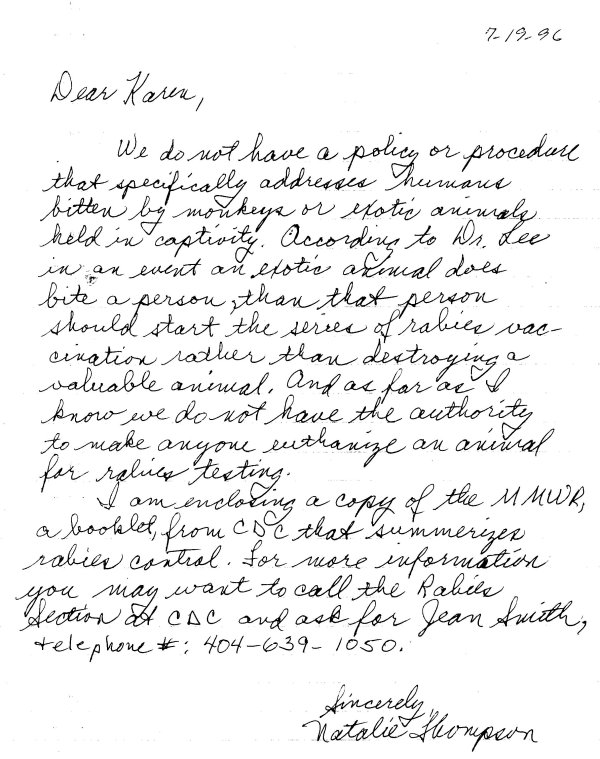 7-19-96
Dear Karen,
We do not have a policy or procedure
that specifically addresses humans
bitten by monkeys or exotic animals
held in captivity. According to Dr. Lee
in an event an exotic animal does
bite a person, than that person
should start the series of rabies vac-
cination rather than destroying a
valuable animal. And as far as I
know we do not have the authority
to make anyone euthanize an animal
for rabies testing.
I am enclosing a copy of the MMWR,
a booklet, from CDC that summerizes
rabies control. For more information
you may want to call the Rabies
Section at CDC and ask for Jean Smith,
telephone #: 404-639-1050.
Sincerely,
Natalie Thompson